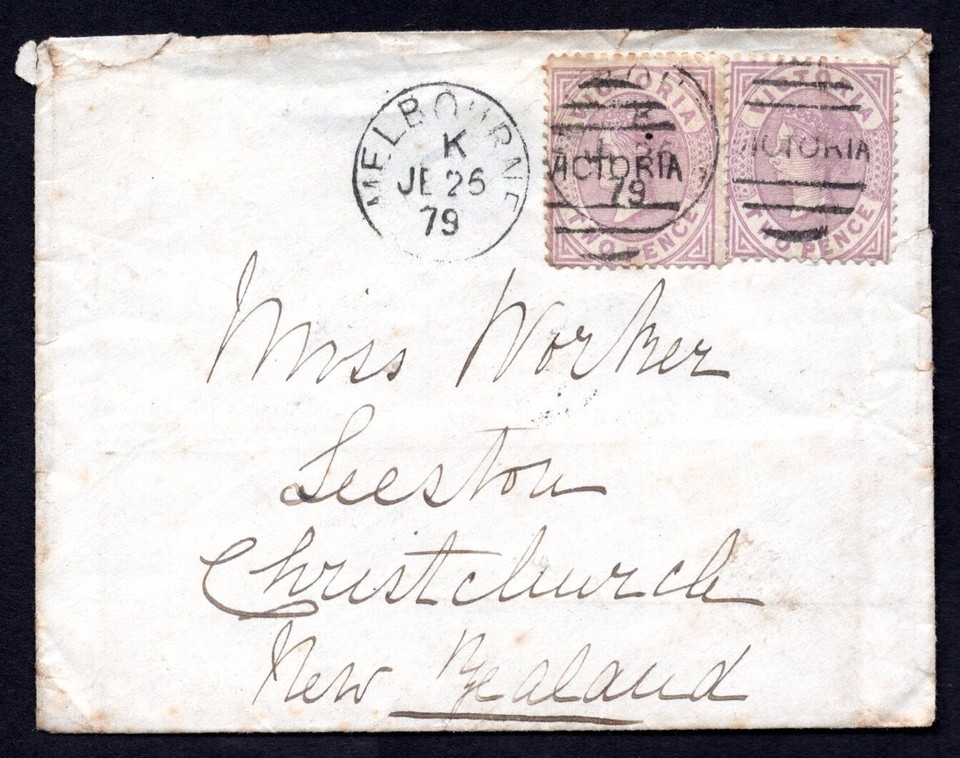 MELBOURNE
K
JE 26
79
VICTORIA
VICTORIA
79
TWO PENCE
VICTORIA
VICTORIA
TWO PENCE
Miss Worker
Leeston
Christchurch
New Zealand